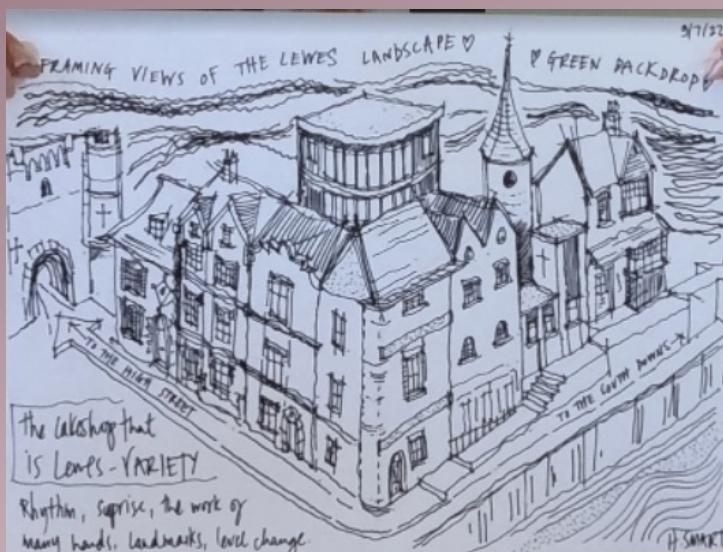 9/7/22
FRAMING VIEWS OF THE LEWES LANDSCAPE ♡
♡ GREEN BACKDROP ♡
TO THE HIGH STREET
TO THE SOUTH DOWNS →
the cakeshop that
is Lewes - VARIETY
Rhythm, suprise, the work of
many hands, landmarks, level change.
H SMART